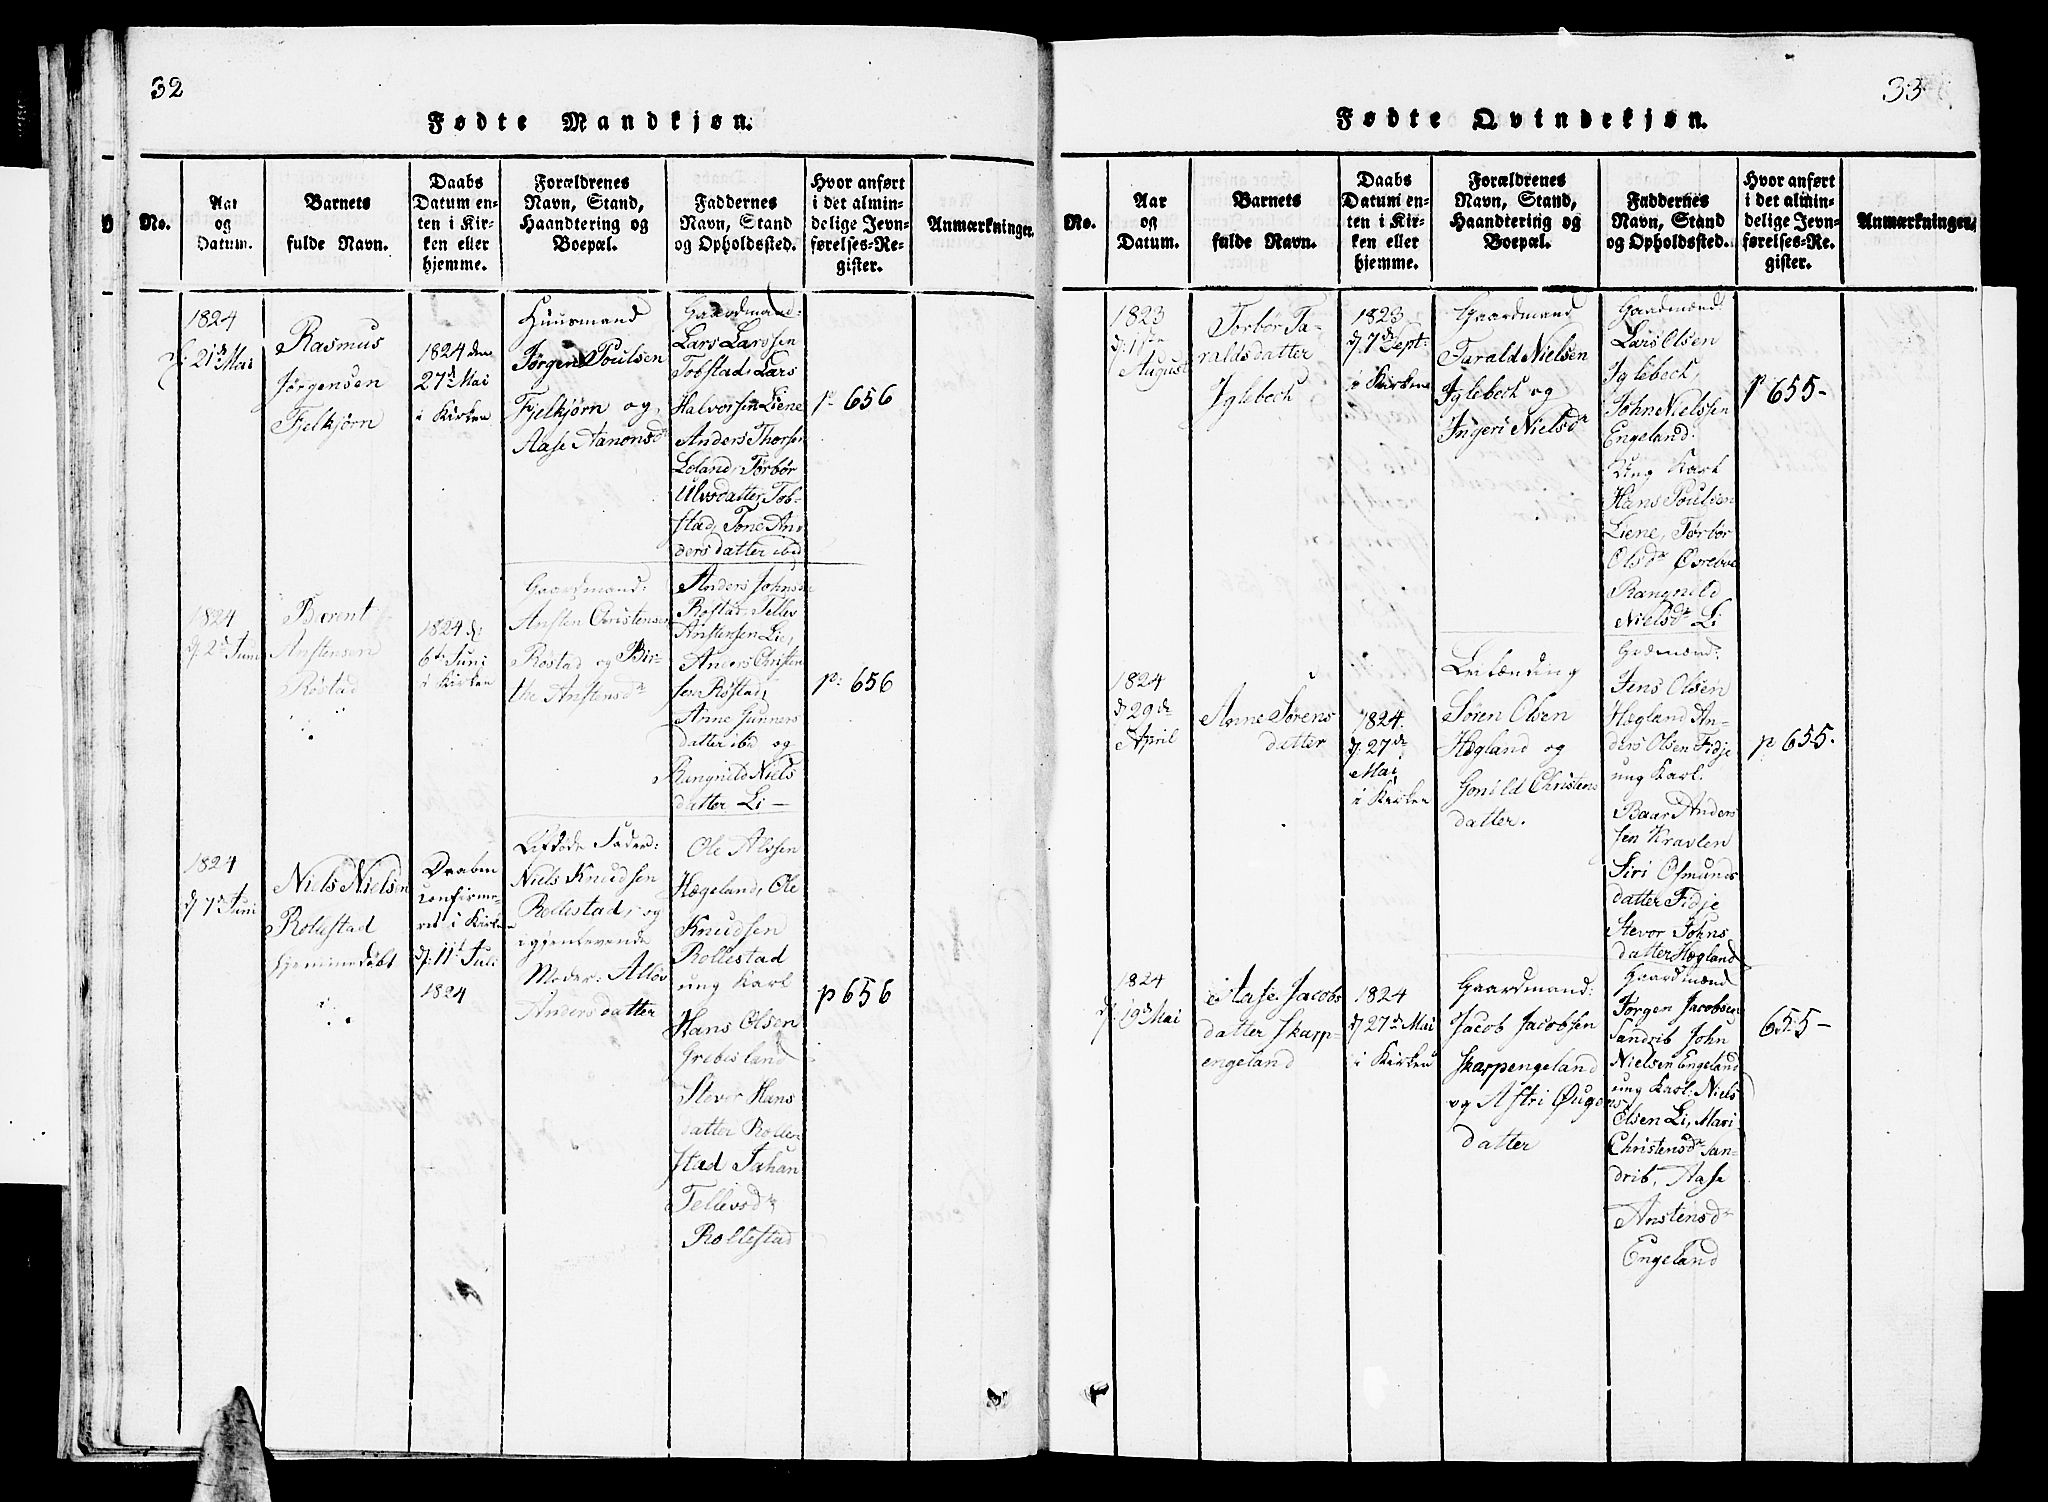 32
Fødte Mandkjøn.
No.
Aar
og
Datum.
Barnets
fulde Navn.
Daabs
Datum en-
ten i Kir-
ken eller
hjemme.
Forældrenes
Navn, Stand,
Haandtering og
Boepæl.
Faddernes
Navn, Stand
og Opholdssted.
Hvor anført
i det almin-
delige Jevn-
førelses-Re-
gister.
Anmærkninger.
1824
d: 21de Mai
Rasmus
Jørgensen
Fjelkjørn
1824 den
27de Mai
i Kirken
Huusmand
Jørgen Poulsen
Fjelkjørn og
Aase Aanonsdr
Gaardmænd:
Lars Larssen
Tobstad, Lars
Halvorsen Liene
Anders Thorsen
Leland, Tørbør
Ulvsdatter Tob-
stad, Tone An-
dersdatter ibid
p 656
1824
d. 2de Juni
Berent
Anstensen
Røstad
1824 d:
6te Juni
i Kirken
Gaardmand:
Ansten Christensen
Røstad og Bir-
the Anstensdr
Anders Johnsen
Røstad, Tellev
Anstensen Lie,
Anders Christen
sen Røstad,
Anne Gunners
datter ibid og
Rangnild Niels
datter Li -
p: 656
1824
d 7de Juni
Niels Nielsen
Rollestad
hjemmedøbt
Daaben
confirme-
ret i Kirken
d: 11te Juli
1824
Niels Knudsen
Rollestad, og
igjenlevende
Moder:
Andersdatter
Ole Alfsen
Hægeland, Ole
Knudsen
Rollestad
ung Karl
Hans Olsen
Grebesland
Stevor Hans
datter Rollen
stad Johan
Tellevsdr
Rollestad
p 656
33
Fødte Qvindekjøn.
No.
Aar
og
Datum.
Barnets
fulde Navn.
Daabs
Datum en-
ten i Kir-
ken eller
hjemme.
Forældrenes
Navn, Stand,
Haandtering og
Boepæl.
Faddernes
Navn, Stand
og Opholdssted.
Hvor anført
i det almin-
delige Jevn-
førelses-Re-
gister.
Anmærkninger.
1823
d. 11te
August
Torbør Ta-
raldsdatter
Iglebeck
1823
d 7de Sept:
i Kirken
Gaardmand
Tarald Nielsen
Iglebeck og
Ingeri Nielsdr
Gaardmænd:
Lars Olsen
Iglebeck,
John Nielssen
Engeland:
Ung Karl
Hans Poulsen
Liene, Tørbør
Olsdr Øvrebøe
Rangnild
Nielsdr Li
p 655-
1824
d. 29de
April
Anne Sørens
datter
1824.
d. 27de
Mai
i Kirken
Leilænding
Søren Olsen
Hægland og
Gonild Christens
datter.
Grdmænd:
Jens Olsen
Hægland An-
ders Olsen Fidje
ung Karl.
Baar Anders
sen Kravlen
Siri Osmunds
datter Fidje
Stevor Johns
datter Hægland
p 655.
1824
d. 19de Mai
Aase Jacobs
datter Skarp-
engeland
1824
d 27de Mai
i Kirken
Gaardmand:
Jacob Jacobsen
Skarpengeland
og Astri Øugens
datter
Gaardmænd
Jørgen Jacobsen
Sandrib John
Nielsen Engeland
ung Karl: Niels
Elsen Li, Mari
Christensdr San-
drib, Aase
Anstensdr
Engeland
655-